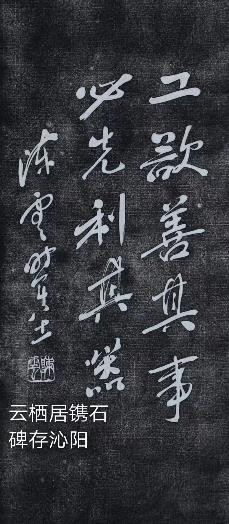 工欲善其事
必先利其器
陈云
云栖居镌石
碑存沁阳